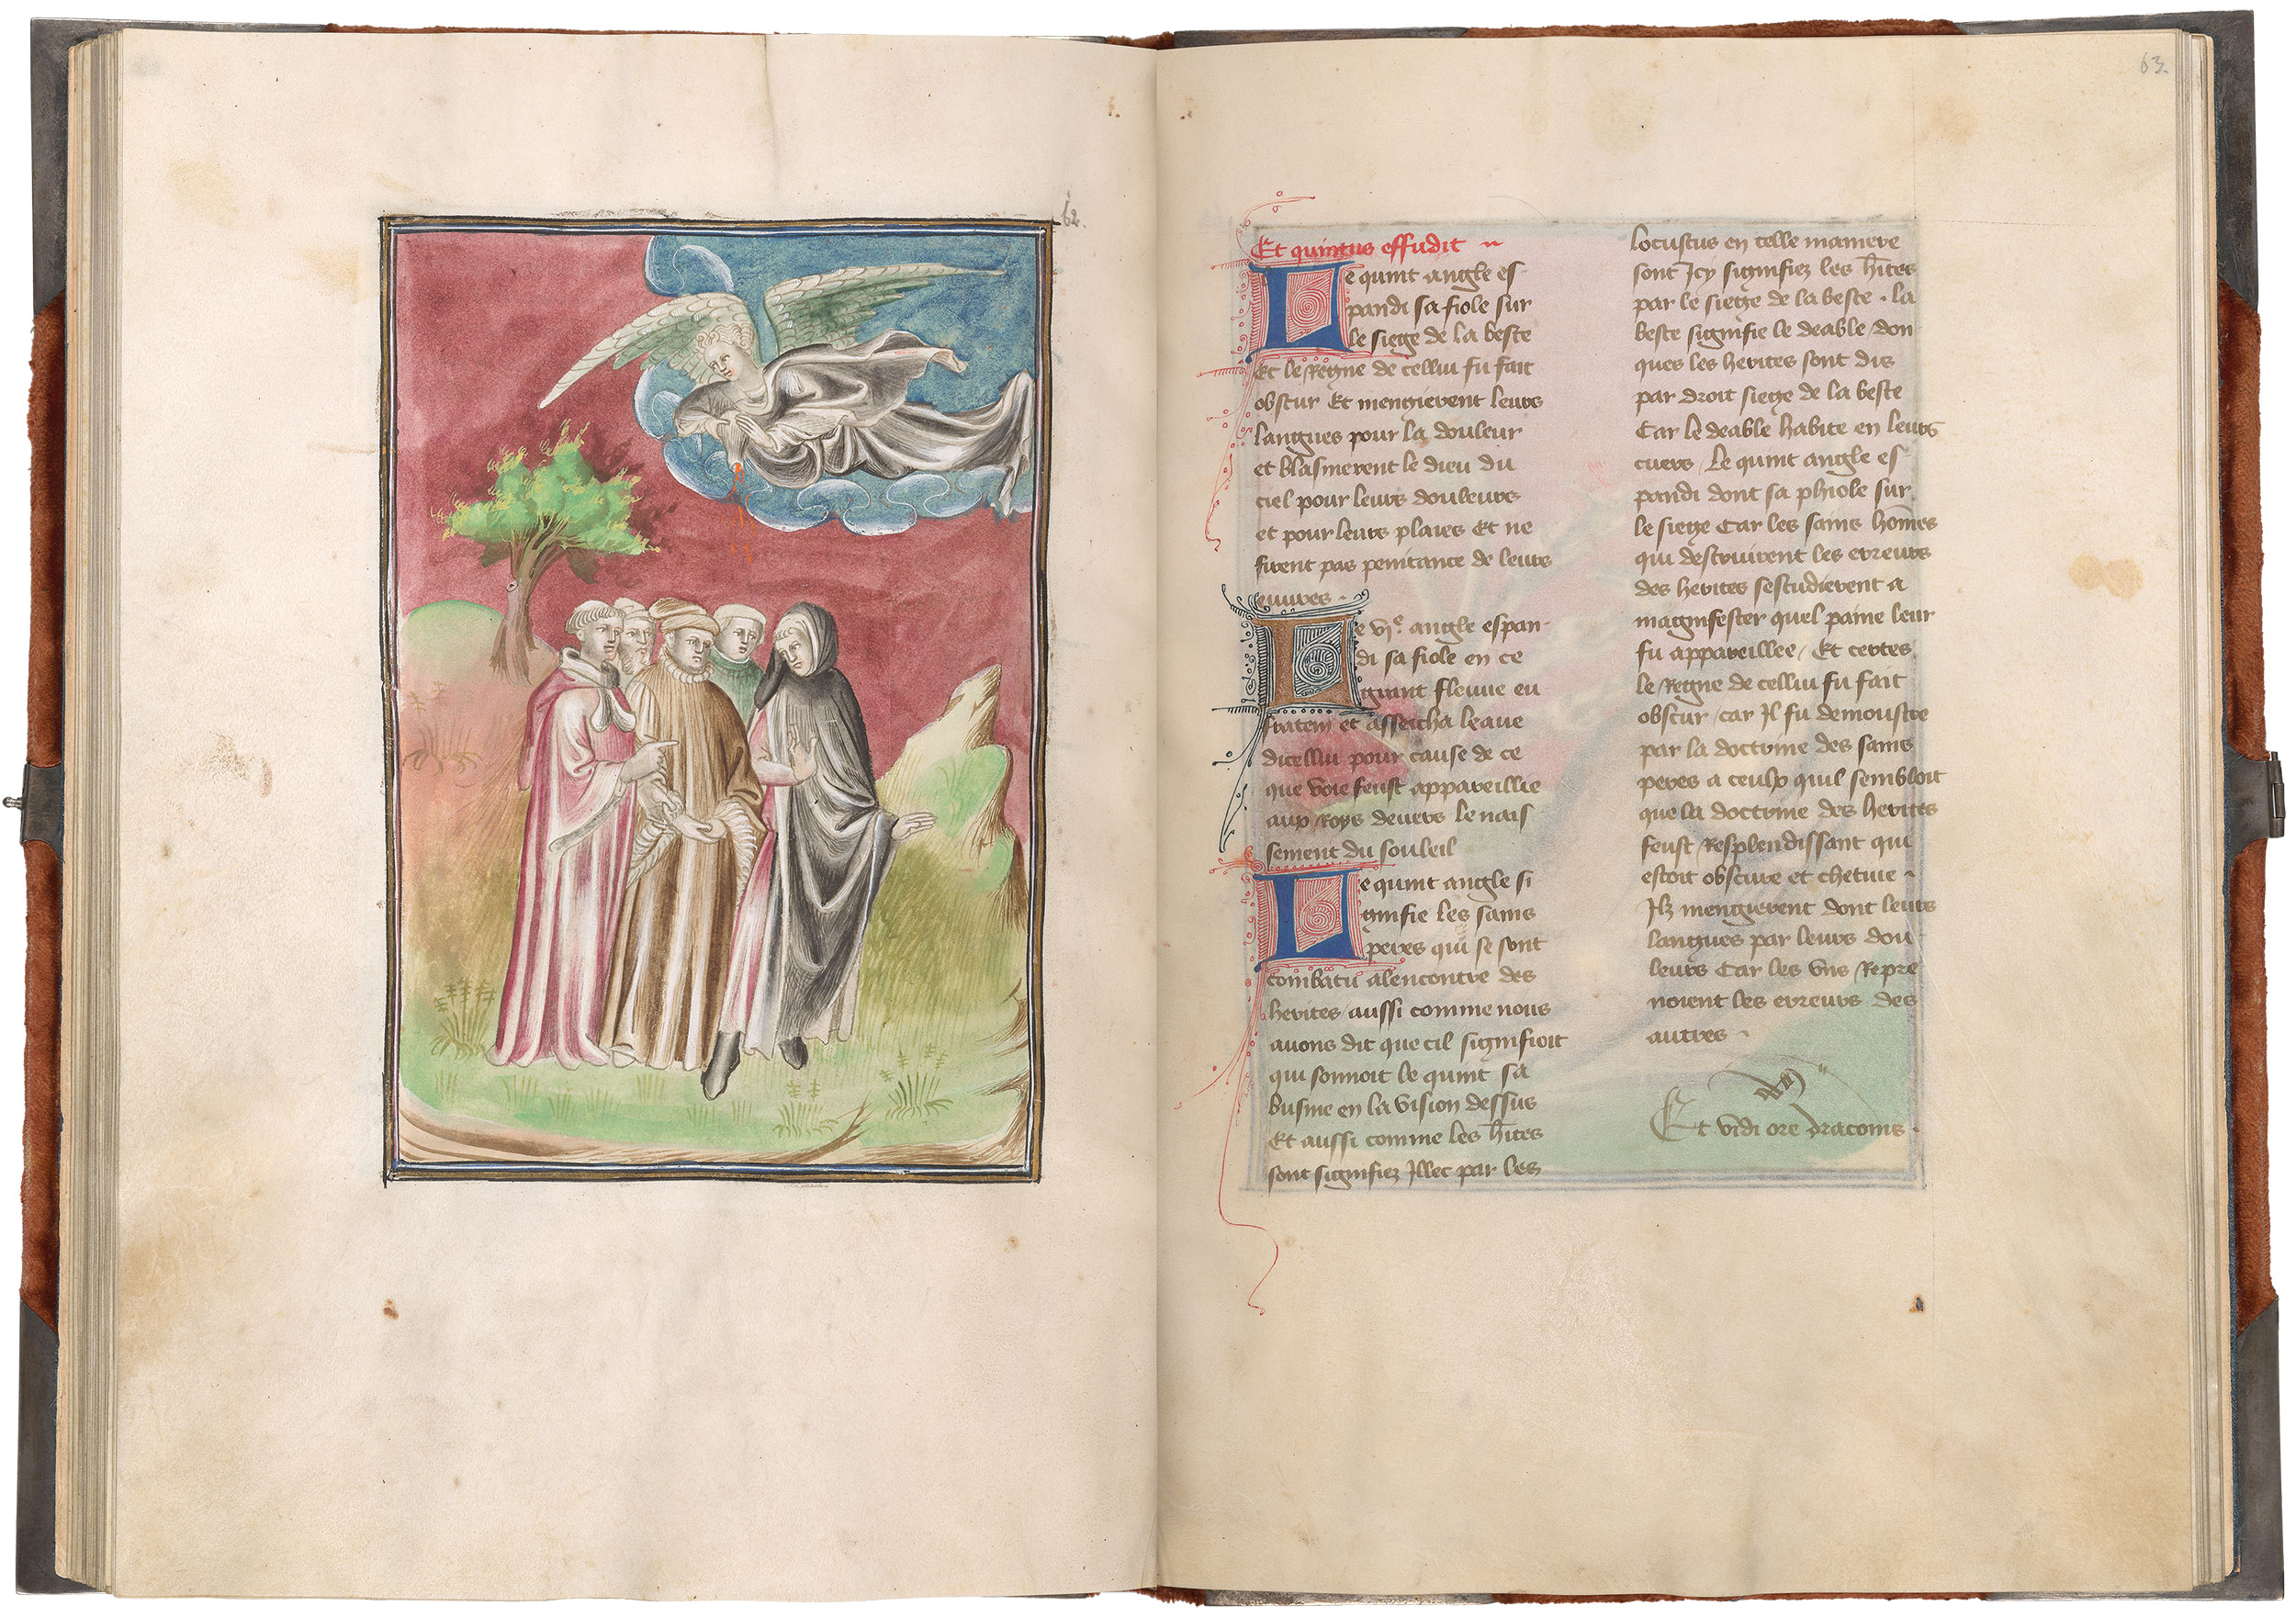 62.
63.
Et quintus effudit
Le quint angle es
pandi sa fiole sur
le siege de la beste
Et le Regne de cellui fu fait
obscur Et mengierent leurs
langues pour la douleur
et blasmerent le dieu du
ciel pour leurs douleurs
et pour leurs plaies Et ne
firent pas penitance de leurs
euures .
Le vj.e angle espan-
di sa fiole en ce
grant fleuue eu
fraten et asseicha leaue
dicellui pour cause de ce
que voie feust appareillie
aux Roys deuers le nais
sement du souleil
Le quint angle si
gnifie les sains
peres qui se sont
combatu alencontre des
herites aussi comme nous
auons dit que cil signifioit
qui sonnoit le quint sa
busine en la vision dessus
Et aussi comme les h̄ites
sont signifiez Illec par les
locustus en telle maniere
sont Icy signifiez les h̄ites
par le siege de la beste . la
beste signifie le deable don-
ques les herites sont dis
par droit siege de la beste
Car le deable habite en leurs
cuers / Le quint angle es
pandi dont sa phiole sur
le siege Car les sains hom̄es
qui destruirent les erreurs
des herites sestudierent a
magnifester quel paine leur
fu appareillee / Et certes
le Regne de cellui fu fait
obscur / car Il fu demoustre
par la doctrine des sains
peres a ceulx quil sembloit
que la doctrine des herites
feust Resplendissant qui
estoit obscure et chetiue
Ilz mengierent dont leurs
langues par leurs dou
leurs Car les vns Repre
noient les erreurs des
autres
Et vidi ore draconis .